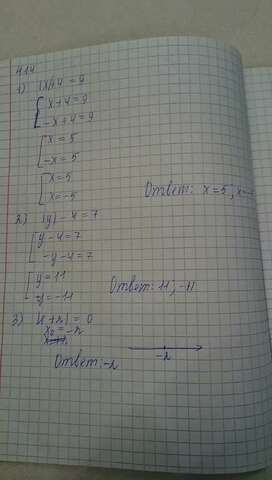 414
1) |x|+4=9
x+4=9
-x+4=9
x=5
-x=5
x=5
x=-5 Ответ: x=5; x=-5
2) |y|-4=7
y-4=7
-y-4=7
y=11
y=-11 Ответ: 11; -11
3) |x+2|=0
x=-2
Ответ: -2
-2